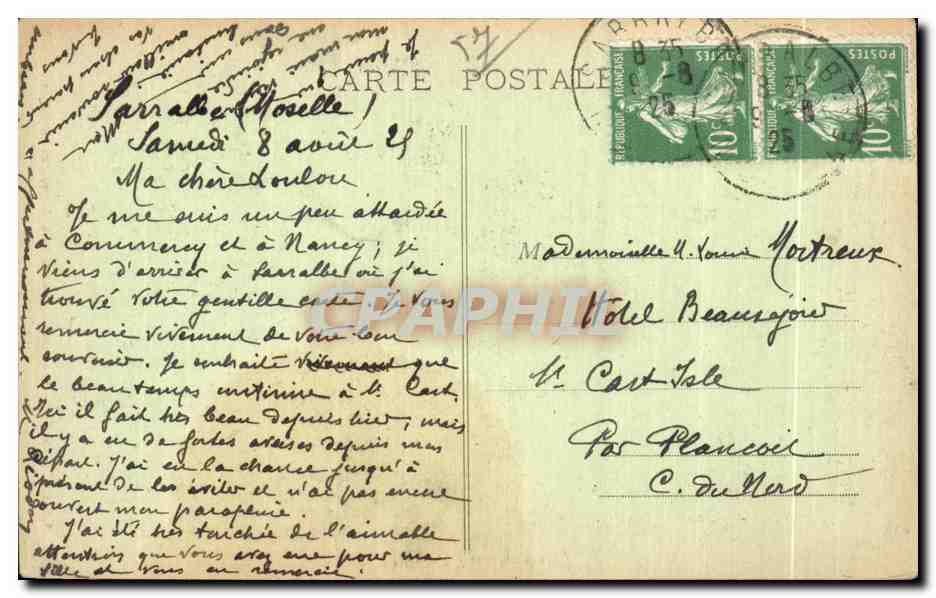 CARTE POSTALE
Sarralbe (Moselle)
Samedi 8 août 25
Ma chère Loulou
Je me suis un peu attardée
à Commercy et à Nancy; je
viens d'arriver à Sarralbe où j'ai
trouvé votre gentille carte. Je vous
remercie vivement de votre bon
souvenir. Je souhaite vivement que
le beau temps continue à St Cast.
Ici il fait très beau depuis hier, mais
il y a eu de fortes averses depuis mon
départ. J'ai eu la chance jusqu'à
présent de les éviter et n'ai pas encore
ouvert mon parapluie.
J'ai été très touchée de l'aimable
attention que vous avez eue pour ma
fille et vous en remercie.
Mademoiselle M. Louise Mortreux
Hôtel Beauséjour
St Cast Isle
Par Plancoët
C. du Nord
RÉPUBLIQUE FRANÇAISE
POSTES
10c
RÉPUBLIQUE FRANÇAISE
POSTES
10c
8 35
25
CPAPHIL